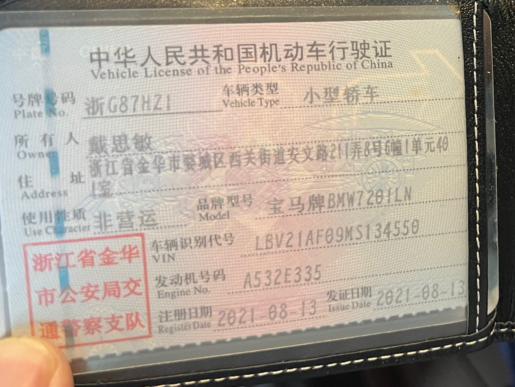 中华人民共和国机动车行驶证
Vehicle License of the People's Republic of China
号牌号码 浙G87HZ1 车辆类型 小型轿车
Plate No. Vehicle Type
所有人 戴思敏
Owner
住址 浙江省金华市婺城区西关街道安文路211弄8号6幢1单元40
Address 1室
使用性质 非营运 品牌型号 宝马牌BMW7201LN
Use Character Model
浙江省金华 车辆识别代号 LBV21AF09MS134550
VIN
市公安局交 发动机号码 A532E335
Engine No.
通警察支队 注册日期 2021-08-13 发证日期 2021-08-13
Register Date Issue Date